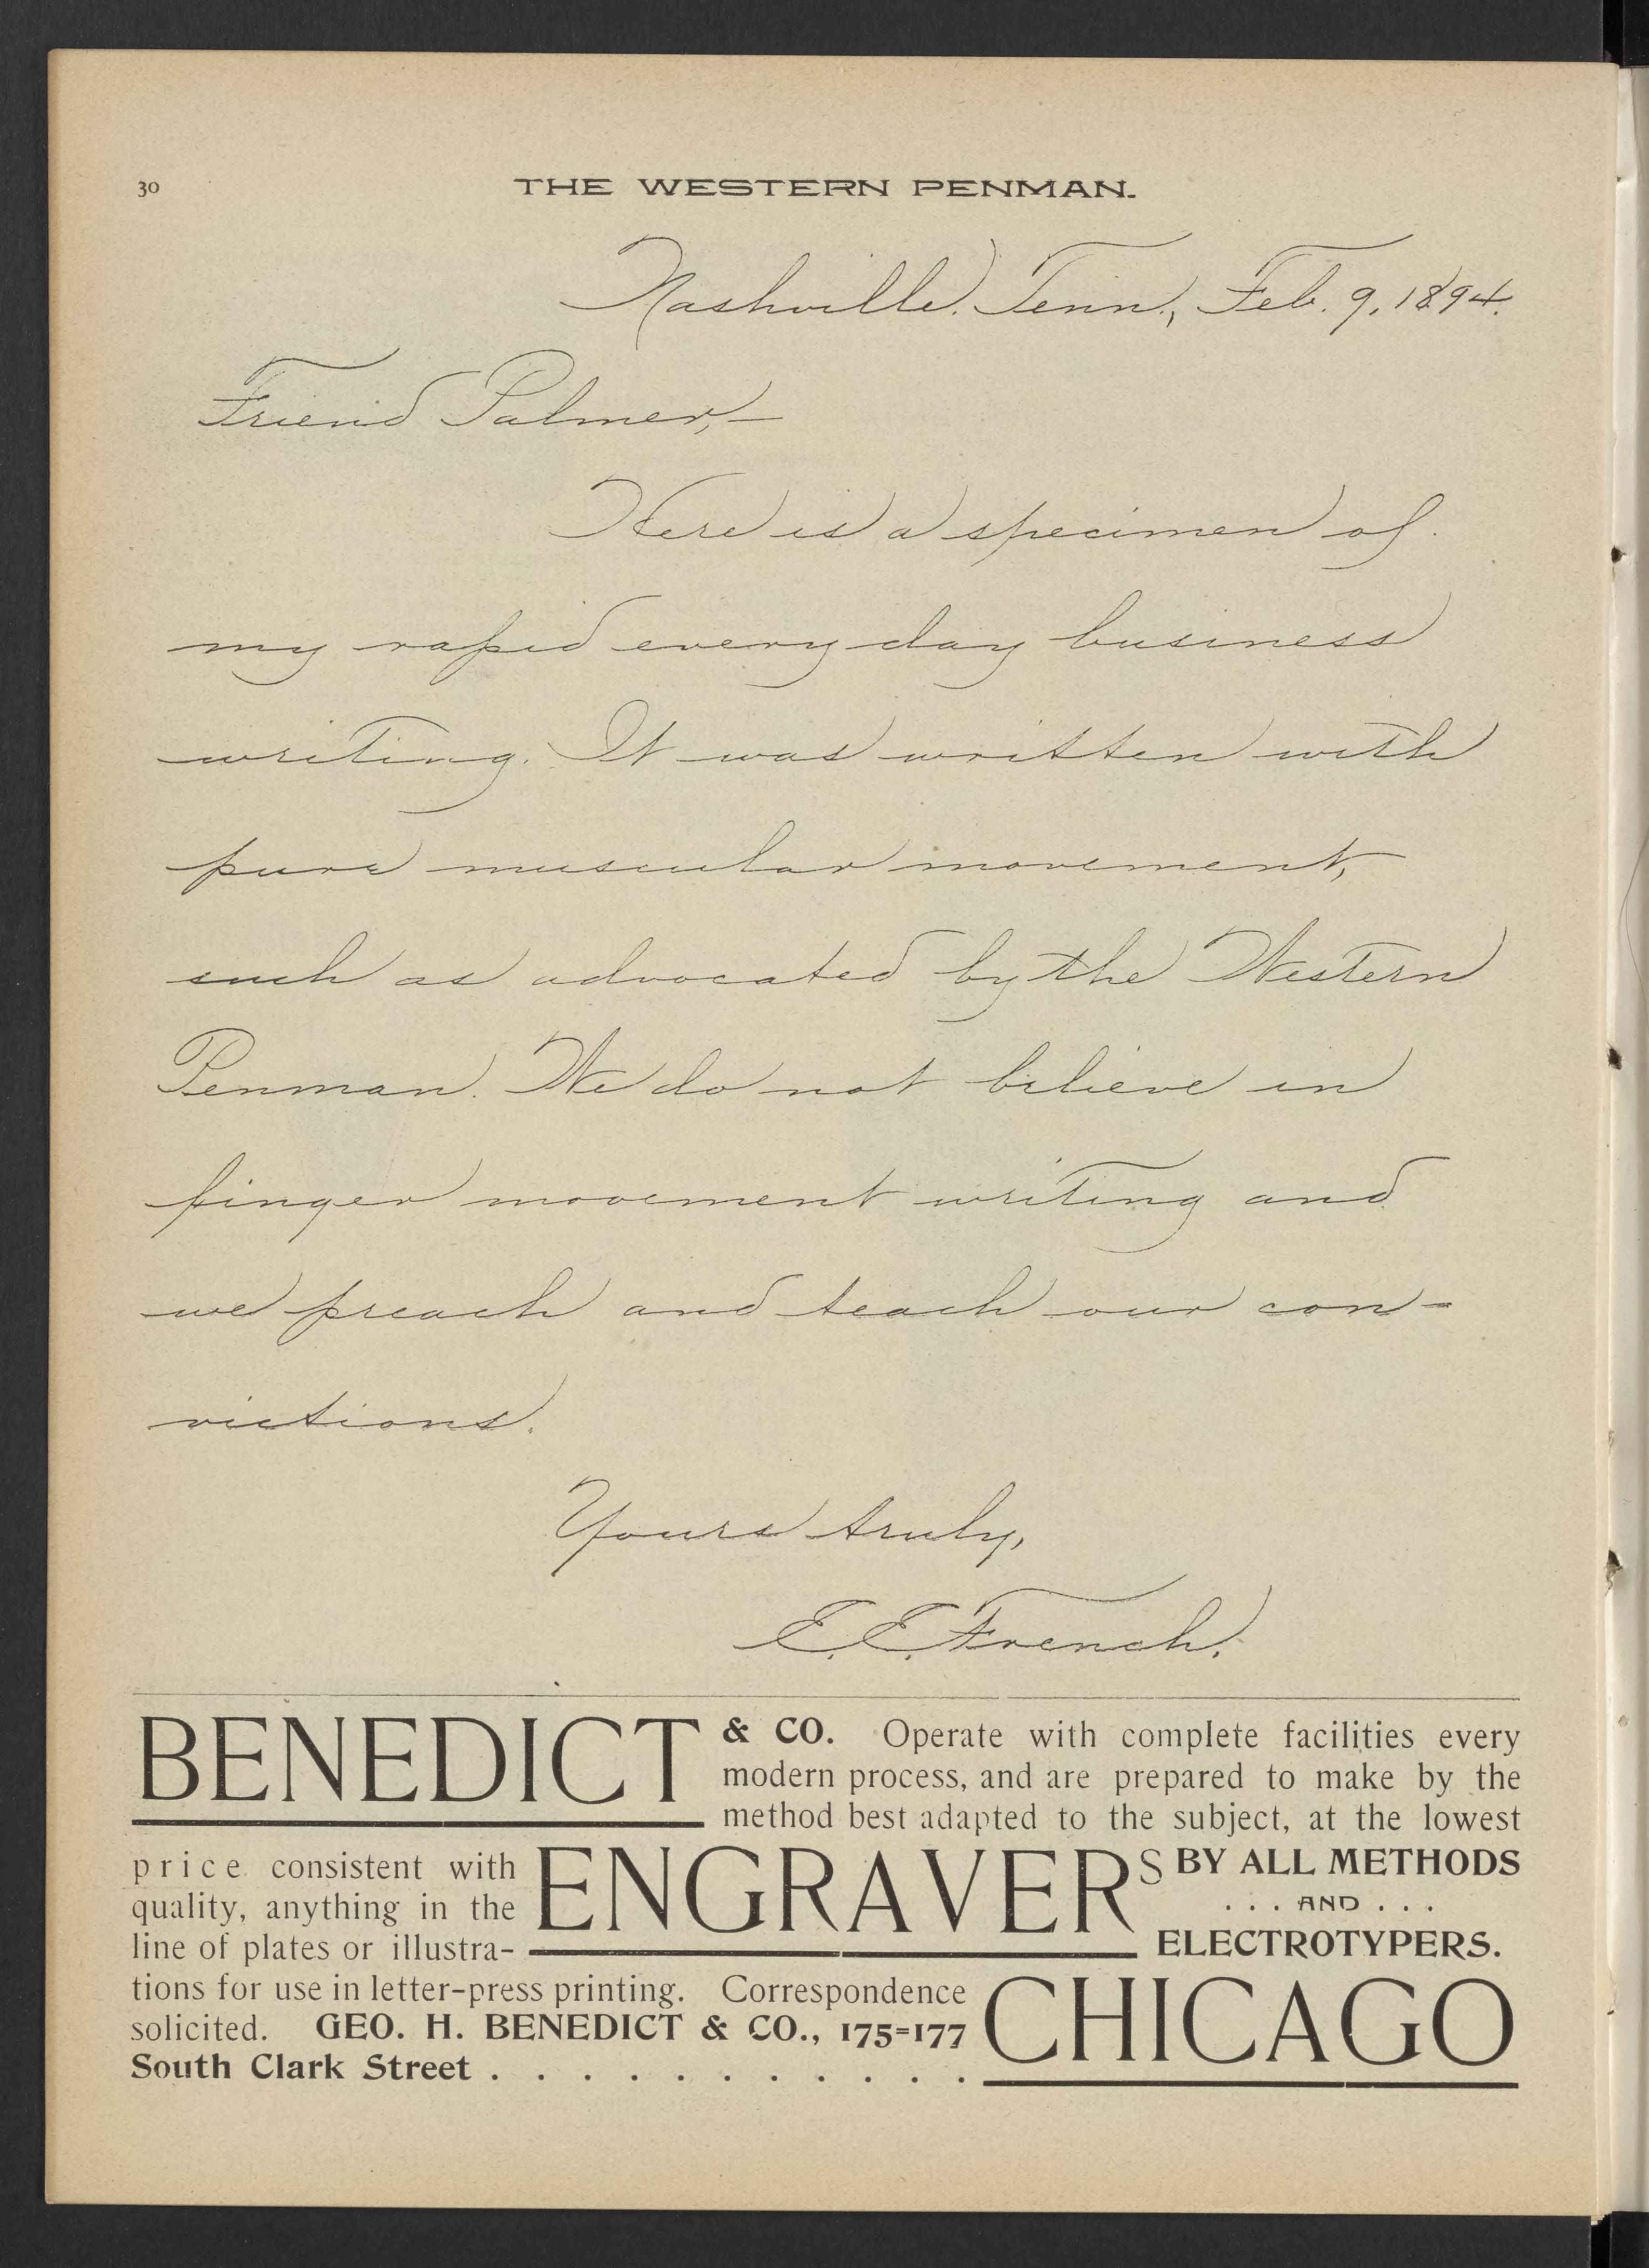 30
THE WESTERN PENMAN.
Nashville. Tenn., Feb. 9, 1894.
Friend Palmer,—
Here is a specimen of
my rapid every day business
writing. It was written with
pure muscular movement,
such as advocated by the Western
Penman. We do not believe in
finger movement writing and
we preach and teach our con-
victions.
Yours truly,
E. E. French.
BENEDICT & CO. Operate with complete facilities every
modern process, and are prepared to make by the
method best adapted to the subject, at the lowest
price consistent with
quality, anything in the
line of plates or illustra-
ENGRAVERS BY ALL METHODS
... AND ...
ELECTROTYPERS.
tions for use in letter-press printing. Correspondence
solicited. GEO. H. BENEDICT & CO., 175=177
South Clark Street . . . . . . . . . . .
CHICAGO